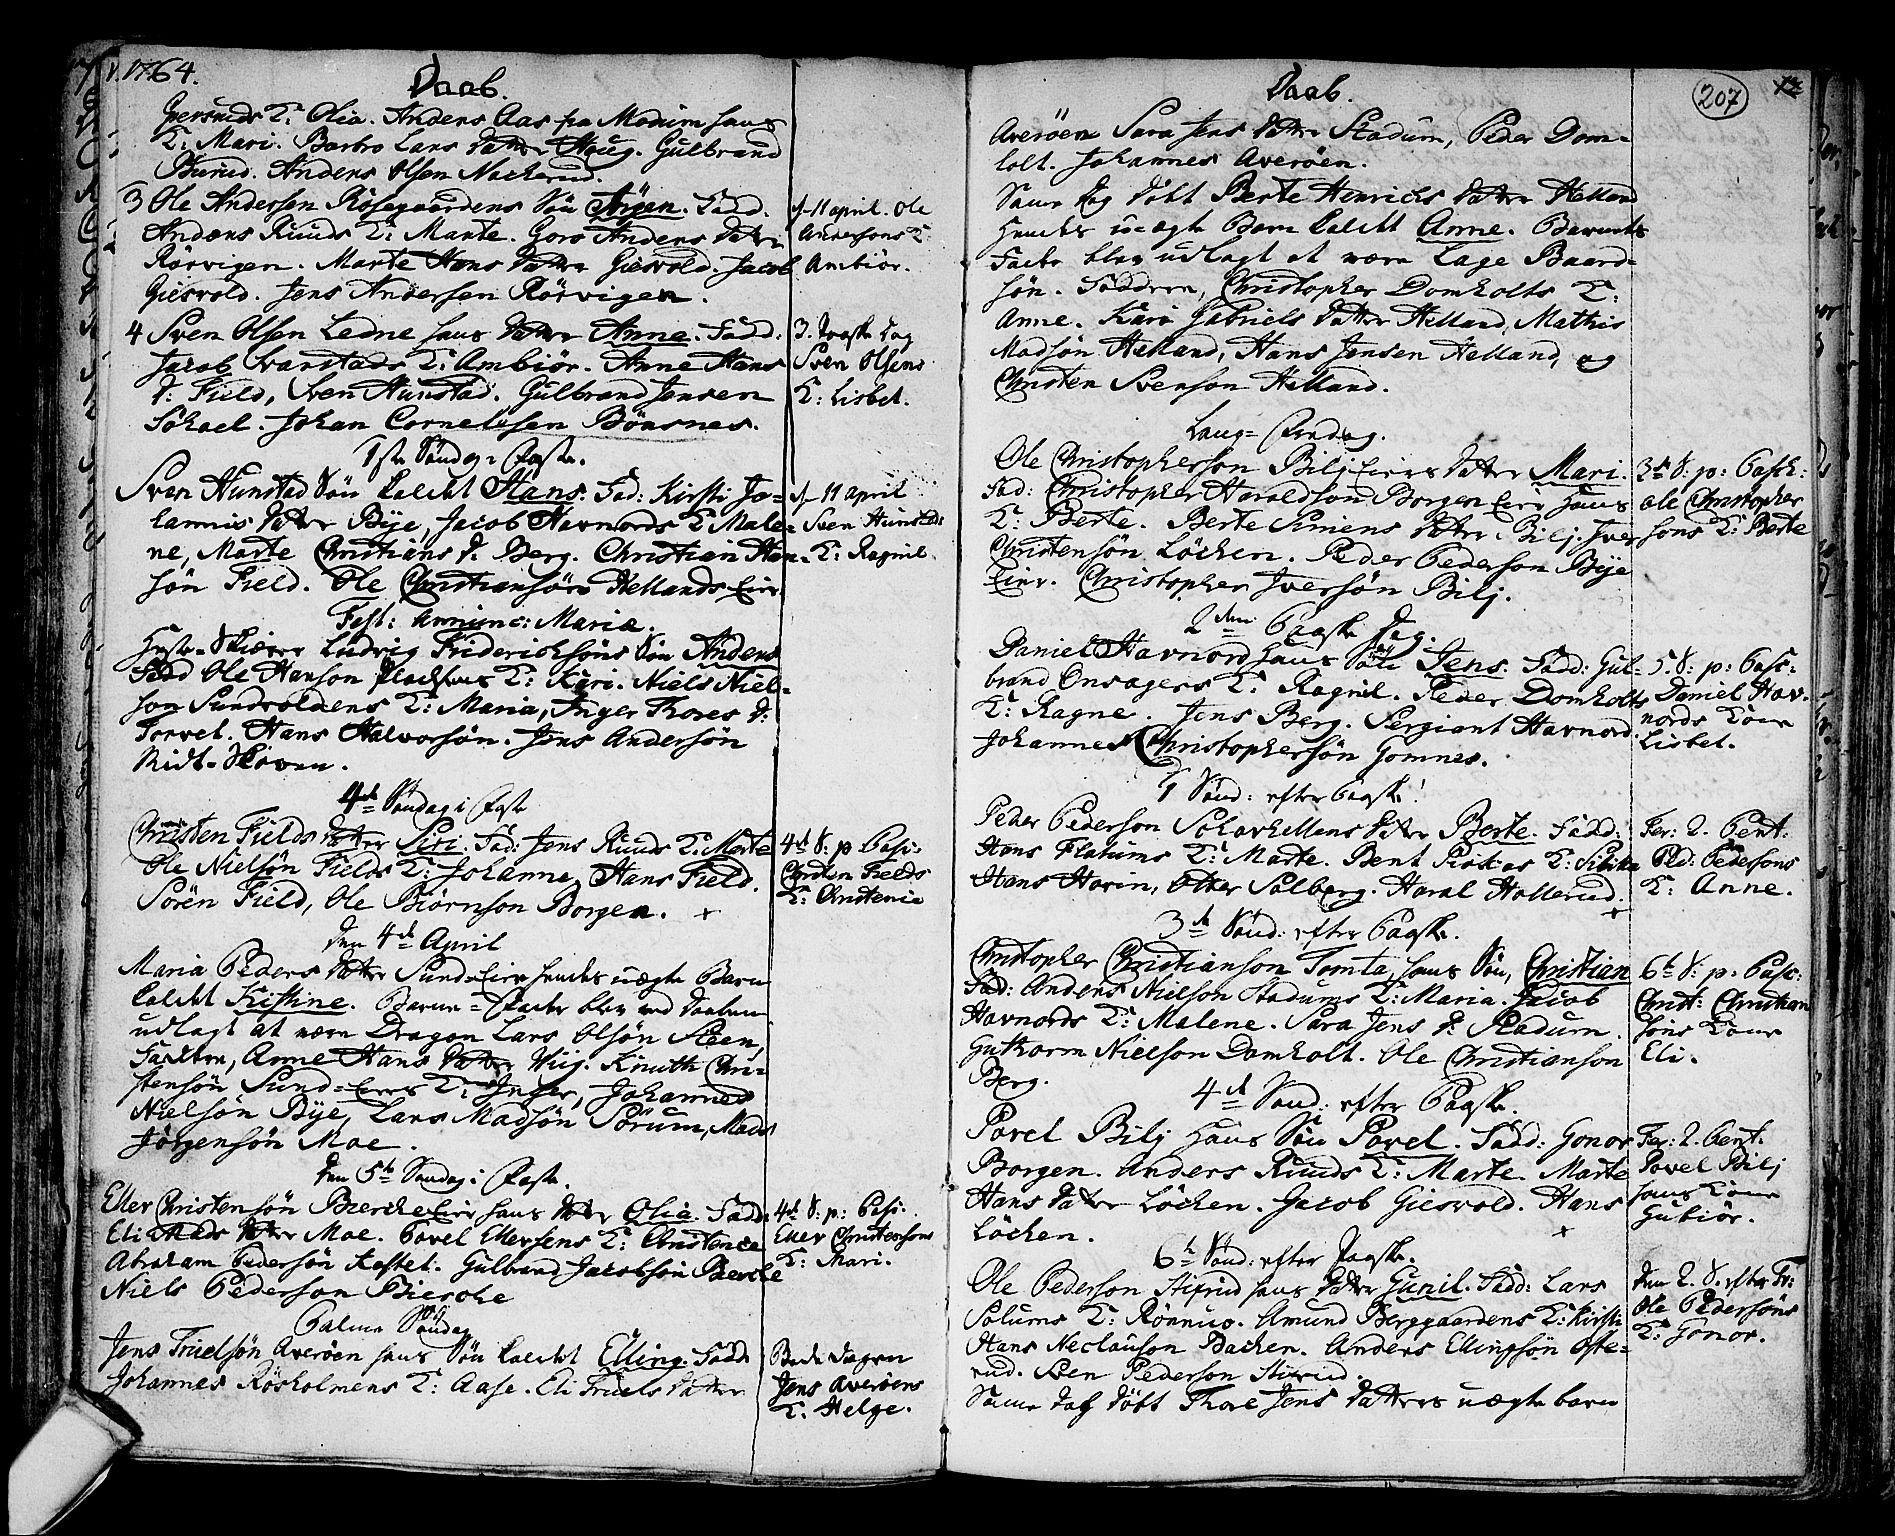 1764.
Daab.
Giersuds K: Olia. Anders Aas fra Modum hans
K: Mari. Barbro Lars datter Houg. Gulbrand
Burud. Anders Olsen Nackerud.
3 Ole Andersen Rösegaardens Sön Jörgen. Fadd.
Anders Ruuds K: Marte. Goro Anders datter
Rörvigen. Marte Hans datter Giesvold. Jacob
Giesvold. Jens Andersen Rörvigen.
4 Sven Olsen Ledne hans datter Anne. Fadd:
Jacob Svanstads K: Ambiör. Anne Hans
d: Field, Sven Hunstad. Gulbrand Jensen
Johan Cornelisen Bönsnes.
1ste Söndag i Faste.
Sven Hunstad Sön kaldt Hans. Fad: Kirsti Jo-
hannis datter Bye, Jacob Havnords K: Male-
ne, Marte Christians d. Berg. Christian Han-
sön Field. Ole Christiansön Hellands Eier
Fest: Annunc: Mariæ.
Ludvig Friderichsöns Sön Anders
Fad Ole Hanson K: Kari. Niels Niel-
son Sundvoldens K: Maria, Inger Thores d:
Torvet. Hans Halvorsön. Jens Andersön
Ridt-Skoven.
4de Söndag i Faste
Christen Fields datter Siri. Fad: Jens Ruuds K: Marte
Ole Nielsön Fields K: Johanne, Hans Field.
Sören Field, Ole Biörnson Borgen. +
den 4de April
Maria Peders datter Sund-Eier hendes uægte Barn
kaldt Kistine. Barne-Fader blev ved Daaben
udlagt at være Dragon Lars Olsön Steen,
Faddere, Anne Hans datter Viig. Knuth Chri-
stensön Sund-Eies K: Inger, Johannes
Nielsön Bye, Lars Madsön Sörum, Mads
Jörgensön Moe.
den 5te Söndag i Faste.
Eller Christensön Bierche Eier hans datter Olia. Fadd:
Eli Mads datter Moe. Povel Ellersens K: Christence
Abraham Pedersön Kastet. Gulbrand Jacobsön Bierche
Niels Pederson Bierche
Palme Söndag
Jens Truelsön Averöen hans Sön kaldt Elling. Fadd:
Johannes Rösholmens K: Aase. Eli Truels datter
d. 11 april. Ole
Andersons K:
Ambiör.
3. Paaske Dag
Sven Olsens
K: Lisbet.
d. 11 april
Sven Hunstads
K: Ragnil.
4de S: p Pasc:
Christen Fields
K: Christence
4de S: p: Pasc:
Eller Christensons
K: Mari.
Bede dagen
Jens Averöens
K: Helge.
Daab.
207
Averöen Sara Jens datter Stadum, Peder Dom-
holt. Johannes Averöen.
Samme Dag Döbt Berte Henrichs datter Helland
hendes uægte Barn kaldt Anne. Barnets
Fader blev udlagt at være Lage Baard-
sön. Faddere, Christopher Domholts K:
Anne. Kari Gabriels datter Helland, Mathis
Madsön Helland, Hans Jensen Helland, og
Christen Svenson Helland.
Lang-Fredag.
Ole Christopherson Bilj Eiers datter Mari.
Fad: Christopher Haraldson Borgen Eier hans
K: Berte. Berte Simens datter Bilj. Iver
Christensön Löchen. Peder Pederson Bye
Eier. Christopher Iversön Bilj.
2den Paaske Dag.
Daniel Havnord hans Sön Jens. Fadd: Gul-
brand Onsagers K: Ragnil. Peder Domholts
K: Ragne. Jens Berg. Sergiant Havnord.
Johannes Christophersön Gomnes.
1 Sönd: efter Paaske.
Peder Pederson Scharhellens datter Berte. Fadd:
Hans Flatums K: Marte. Bent K:
Hans Horin, Otter Solberg. Haral Hollerud.
+
3de Sönd: efter Paaske.
Christopher Christianson Tomta hans Sön, Christian
Fad: Anders Nielson Stadums K: Maria. Jacob
Havnords K: Malene. Sara Jens d: Stadum.
Guthorm Nielson Domholt. Ole Christianson
Berg.
4de Sönd: efter Paaske.
Povel Bilj hans Sön Povel. Fadd: Gonor
Borgen. Anders Ruuds K: Marte. Marte
Hans datter Löchen. Jacob Giesvold. Hans
Löchen. +
6te Sönd: efter Paaske.
Ole Pederson Stifrud hans datter Gunil. Fadd: Lars
Solums K: Rönnue. Amund Berggaardens K: Kirsti
Hans Neclauson Bachen. Anders Ellingsön Ofte-
rud. Sven Pederson Stifrud.
Samme dag döbt Thore Jens datters uægte barn
3de S: p: Pasch:
Ole Christopher
sons K: Berte
5. S: p: Pasc:
Daniel Hav-
nords Kone
Lisbet.
Fer: 2. Pent:
Ped: Pedersons
K: Anne.
6te S: p: Pasc:
Christ: Christian
sons Kone
Eli.
Fer: 2. Pent.
Povel Bilj
hans Kone
Gubiör.
den 2. S. efter Tr:
Ole Pedersöns
K: Gonor.